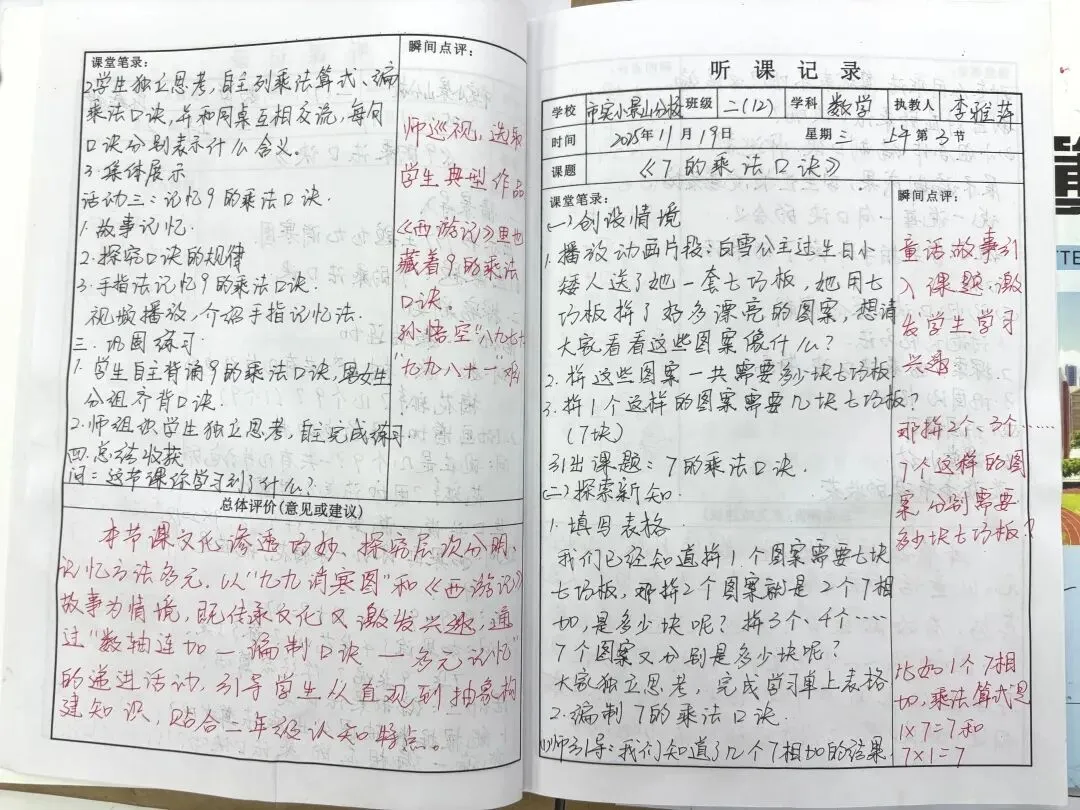 课堂笔录:
2.学生独立思考,自主列乘法算式、编
乘法口诀,并和同桌互相交流,每句
口诀分别表示什么含义。
3.集体展示
活动三:记忆9的乘法口诀.
1.故事记忆.
2.探究口诀的规律
3.手指法记忆9的乘法口诀.
视频播放,介绍手指记忆法.
三.巩固练习.
1.学生自主背诵9的乘法口诀,男女生
分组齐背口诀.
2.师组织学生独立思考,自主完成练习.
四.总结收获
问:这节课你学习到了什么?
瞬间点评:
师巡视,选取
学生典型作品
《西游记》里也
藏着9的乘法
口诀.
孙悟空"八九七十
"九九八十一"难
总体评价(意见或建议)
本节课文化渗透巧妙、探究层次分明、
记忆方法多元.以"九九消寒图"和《西游记》
故事为情境,既传承文化又激发兴趣;通
过"数轴连加—编制口诀—多元记忆"
的递进活动,引导学生从直观到抽象构
建知识,贴合二年级认知特点。
听课记录
学校 市实小景山分校 班级 二(12) 学科 数学 执教人 李雅萍
时间 2025年11月19日 星期三 上午第3节
课题 《7的乘法口诀》
课堂笔录:
(一)创设情境
1.播放动画片段:白雪公主过生日小
矮人送了她一套七巧板,她用七
巧板拼了好多漂亮的图案,想请
大家看看这些图案像什么?
2.拼这些图案一共需要多少块七巧板
3.拼1个这样的图案需要几块七巧板?
(7块)
引出课题:7的乘法口诀.
(二)探索新知.
1.填写表格
我们已经知道拼1个图案需要七块
七巧板,那拼2个图案就是2个7相
加,是多少块呢?拼3个、4个……
7个图案又分别是多少块呢?
大家独立思考,完成学习单上表格
2.编制7的乘法口诀.
(1)师引导:我们知道了几个7相加的结果.
瞬间点评:
童话故事引
入课题,激
发学生学习
兴趣
那拼2个、3个……
7个这样的图
案分别需要
多少块七巧板?
比如1个7相
加,乘法算式是
1×7=7和
7×1=7